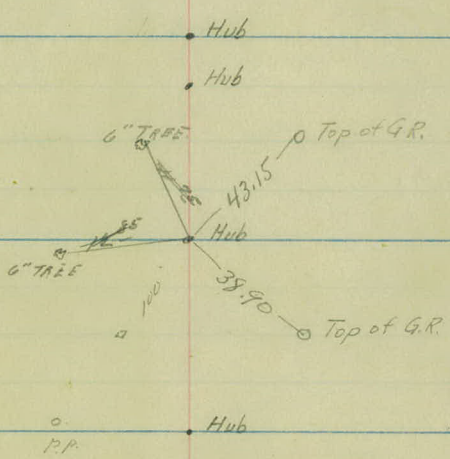 Hub
Hub
6" TREE
Top of G.R.
43.15
Hub
6" TREE
38.90
100
Top of G.R.
Hub
P.P.